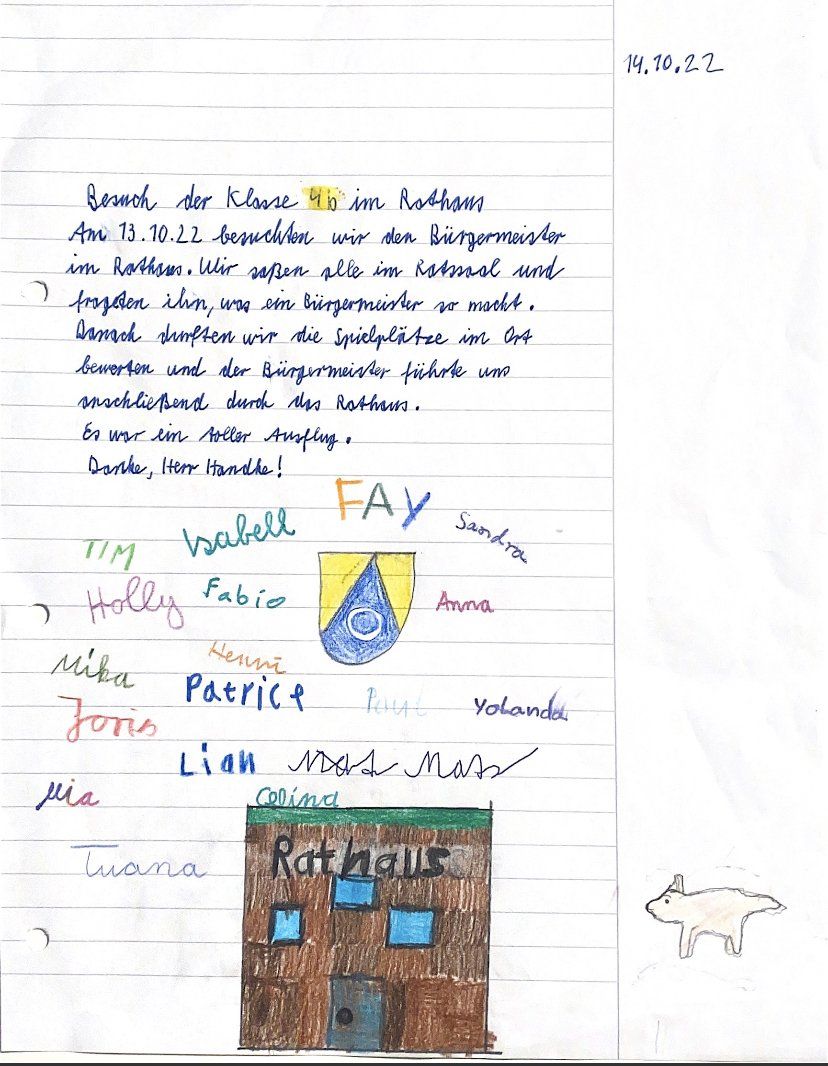 14.10.22
Besuch der Klasse 4b im Rathaus
Am 13.10.22 besuchten wir den Bürgermeister
im Rathaus. Wir saßen alle im Ratssaal und
fragten ihn, was ein Bürgermeister so macht.
Danach durften wir die Spielplätze im Ort
bewerten und der Bürgermeister führte uns
anschließend durch das Rathaus.
Es war ein toller Ausflug.
Danke, Herr Handke!
FAY
TIM Isabell Sandra
Holly Fabio Anna
Mika Henri
Patrice Paul Yolanda
Joris
Lian Mats
Mia Celina
Tuana
Rathaus